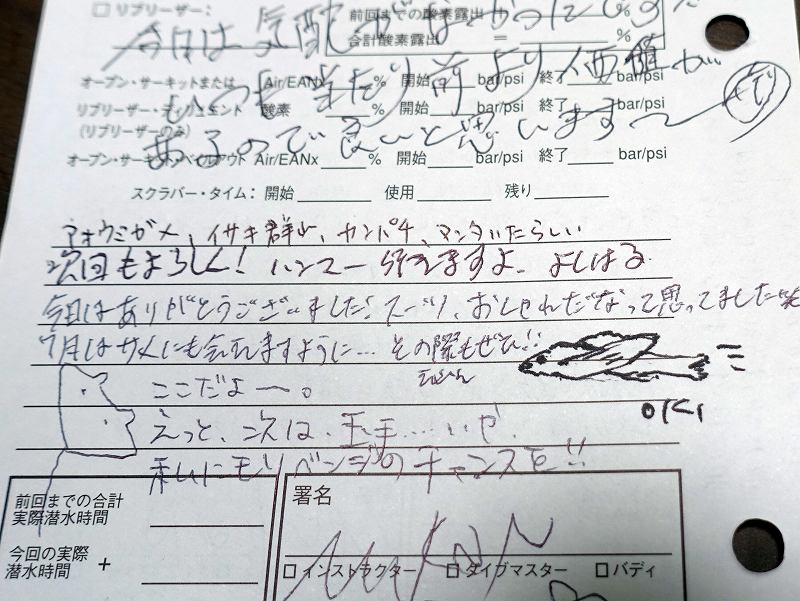 リブリーザー：
前回までの酸素露出 %
合計酸素露出 = %
今日は気配がなかったです
オープン・サーキットまたは Air/EANx % 開始 bar/psi 終了 bar/psi
いつも 当たり前より価値が
リブリーザー・ディリュエント 酸素 % 開始 bar/psi 終了 bar/psi
(リブリーザーのみ)
あるので良いと思います〜
オープン・サーキット・ベイルアウト Air/EANx % 開始 bar/psi 終了 bar/psi
スクラバー・タイム： 開始 使用 残り
アオウミガメ、イサキ群れ、カンパチ、マンタいたらしい
次回もよろしく! ハンマー 行きますよ よしはる
今日はありがとうございました! スーツ、おしゃれだなって思ってました笑
7月はサメにも会えますように… その際もぜひ!!
OKI
ここだよ〜。
えっと、次は、玉手……いや、
私にもリベンジのチャンスを!!
前回までの合計
実際潜水時間
今回の実際
潜水時間 +
署名
インストラクター ダイブマスター バディ